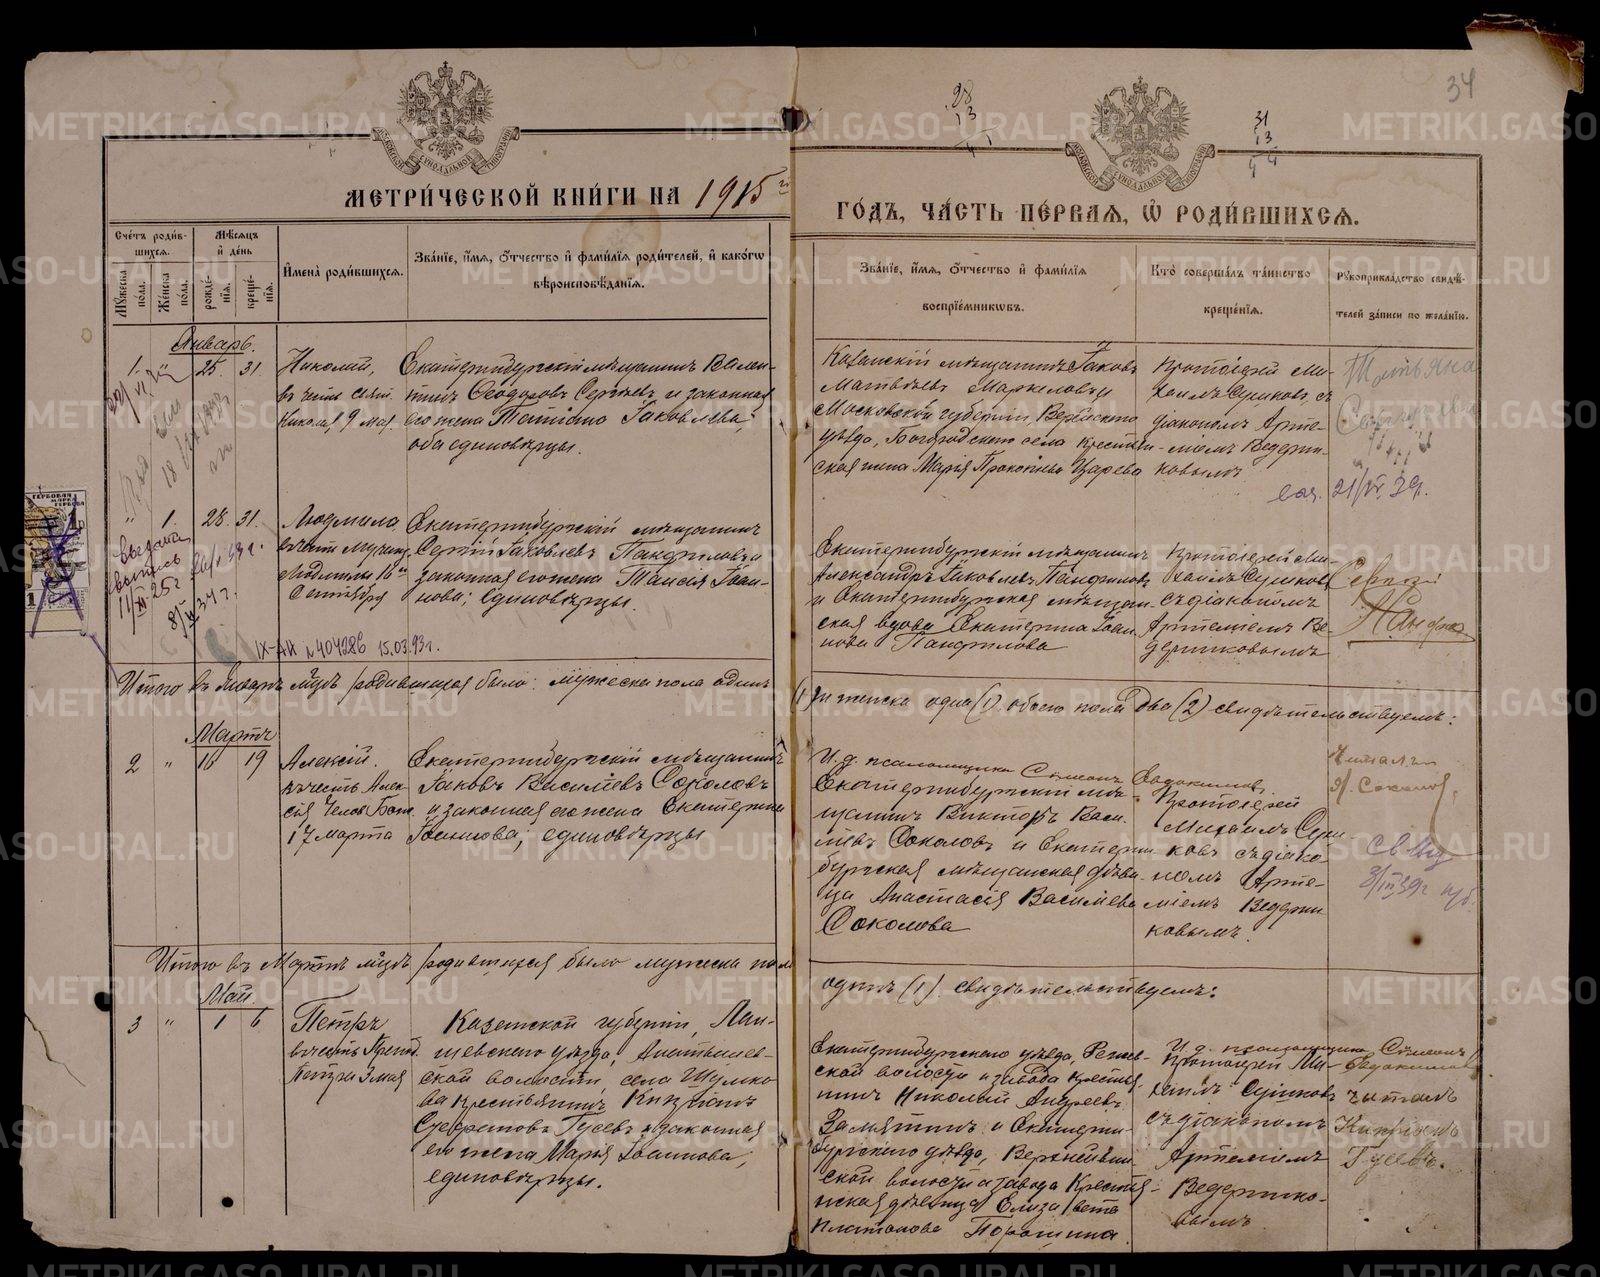 34
28
13
31
13
МЕТРИ́ЧЕСКОЙ КНИ́ГИ НА 1915 й
ГО́ДЪ, ЧА́СТЬ ПЕ́РВАЯ, Ѡ҆ РОДИ́ВШИХСЯ.
Сче́тъ роди́вшихся.
Мꙋ́жеска по́ла.
Же́нска по́ла.
Мѣ́сяцъ и҆ де́нь
рожде́нїѧ.
креще́нїѧ.
И҆мена̀ роди́вшихсѧ.
Зва́нїе, и҆́мѧ, ѻ҆́тчество и҆ фами́лїѧ роди́телей, и҆ како́гѡ
вѣроисповѣ́данїѧ.
Зва́нїе, и҆́мѧ, ѻ҆́тчество и҆ фами́лїѧ
воспрїе́мниковъ.
Кто̀ соверша́лъ та́инство
креще́нїѧ.
Рꙋкоприкла́дство свидѣ́-
телей за́писи по жела́нїю.
Январь.
1. " 25. 31.
Николай,
въ честь святит.
Николая, 9 Мая
Екатеринбургскій мѣщанинъ Вален-
тинъ Ѳеодоровъ Сергѣевъ и законная
его жена Татіана Іаковлева,
оба единовѣрцы.
Казанскій мѣщанинъ Іаковъ
Матвѣевъ Маркеловъ и
Московской губерніи, Верейского
уѣзда, Богородского села крестьян-
ская жена Марія Прокопіева Царева
Протоіерей Ми-
хаилъ Сушковъ съ
діакономъ Арте-
міемъ Ведерни-
ковымъ
Татьяна
Сергѣева
21/VI 39г.
" 1. 28. 31.
Людмила
въ честь Мучениц.
Людмилы 16го
Сентября
Екатеринбургскій мѣщанинъ
Сергій Іаковлевъ Панфиловъ и
законная его жена Таисія Іоан-
нова; единовѣрцы.
Екатеринбургскій мѣщанинъ
Александръ Іаковлевъ Панфиловъ
и Екатеринбургская мѣщан-
ская вдова Екатерина Іоан-
нова Панфилова
Протоіерей Ми-
хаилъ Сушковъ
съ діакономъ
Артеміемъ Ве-
дерниковымъ
Сергѣй
Панфил
выдана
выпись
11/XI 25г
8/VI 34г.
IX-АИ №404286 15.03.93г.
Итого въ Январѣ мѣсѣ родившихся было: мужеска пола одинъ
(1) и женска одна (1) обоего пола два (2) свидѣтельствуемъ:
Мартъ
2 " 16 19
Алексій.
въ честь Алек-
сія Челов. Божія
17 марта
Екатеринбургскій мѣщанинъ
Іаковъ Василіевъ Соколовъ
и законная его жена Екатерина
Іоаннова; единовѣрцы
И. д. псаломщика Сѵмеонъ Евдокимовъ
Екатеринбургскій мѣ-
щанинъ Викторъ Васи-
ліевъ Соколовъ и Екатерин-
бургская мѣщанская дѣви-
ца Анастасія Василіева
Соколова
Протоіерей
Михаилъ Суш-
ковъ съ діако-
номъ Арте-
міемъ Ведерни-
ковымъ.
Читалъ
Я. Соколовъ
св. выд.
3/III 39г
Итого въ Мартѣ мѣсѣ родившихся было мужеска пола
одинъ (1). свидѣтельствуемъ:
Май.
3 " 1 6
Петръ
въ честь Препод.
Петра 3 мая
Казанской губерніи, Лаи-
шевского уѣзда, Анатышев-
ской волости, села Шумко-
ва крестьянинъ Кипріанъ
Стефановъ Гусевъ и законная
его жена Марія Іоаннова,
единовѣрцы.
И. д. псаломщика Сѵмеонъ Евдокимовъ
Екатеринбургскаго уѣзда, Режев-
ской волости и завода крестья-
нинъ Николай Андреевъ
Замятинъ и Екатерин-
бургскаго уѣзда, Верхнейвин-
ской волости и завода крестья-
нская дѣвица Елизавета
Платонова Порошина.
Протоіерей Ми-
хаилъ Сушковъ
съ діакономъ
Артеміемъ
Ведернико-
вымъ.
читалъ
Кипріянъ
Гусевъ.
METRIKI.GASO-URAL.RU